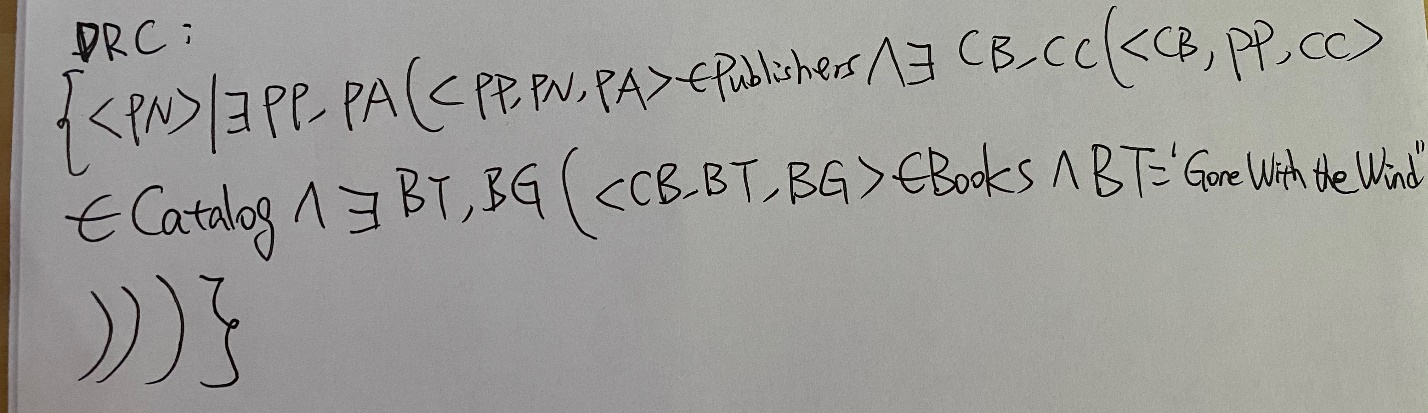 DRC:
{<PN>|∃PP, PA(<PP,PN,PA>∈Publishers∧∃ CB,CC(<CB,PP,CC>
∈Catalog∧∃BT,BG(<CB,BT,BG>∈Books∧BT='Gone With the Wind"
)))}